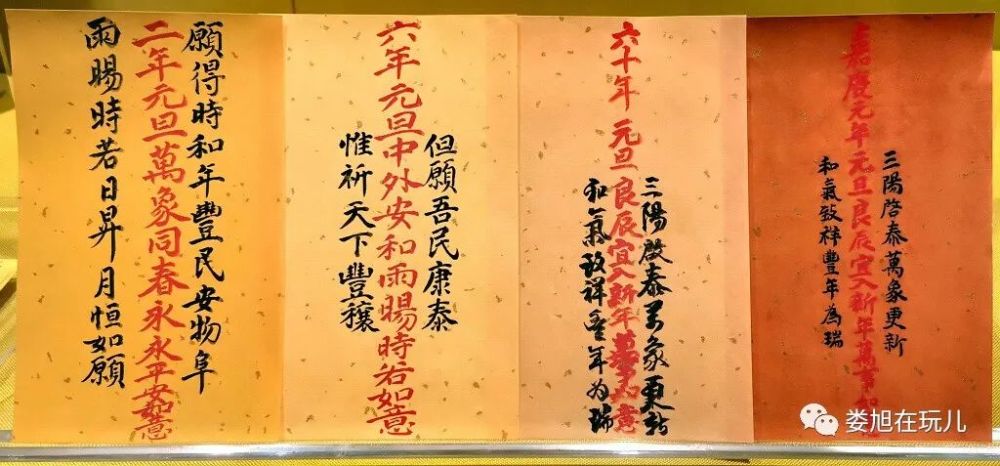 三陽啓泰萬象更新
嘉慶元年元旦良辰宜入新年萬事如意
和氣致祥豐年為瑞
三陽啟泰万象更新
六十年元旦良辰宜入新年萬事如意
和氣致祥豐年为瑞
但願吾民康泰
六年元旦中外安和雨暘時若如意
惟祈天下豐穰
願得時和年豐民安物阜
二年元旦萬象同春永永平安如意
雨暘時若日昇月恒如願
娄旭在玩儿